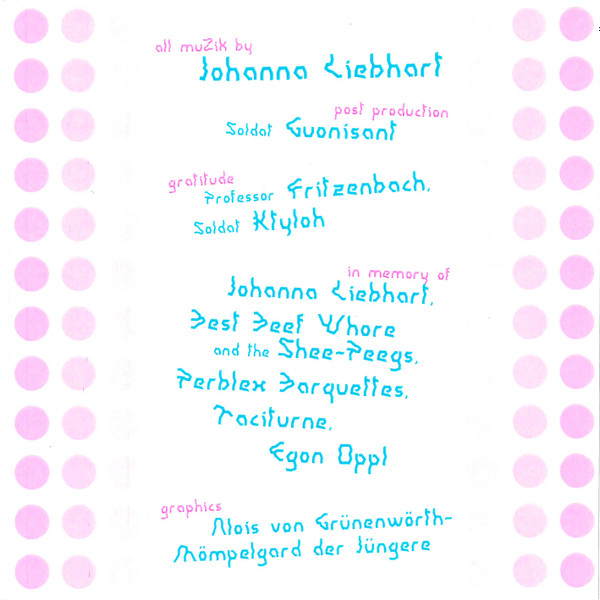 all muZik by
Johanna Liebhart
post production
Soldat Guonisant
gratitude
Professor Fritzenbach,
Soldat Ktyloh
in memory of
Johanna Liebhart,
Best Beef Whore
and the Shee-Peegs,
Perblex Barquettes,
Taciturne,
Egon Oppl
graphics
Alois von Grünenwörth-
Mömpelgard der Jüngere